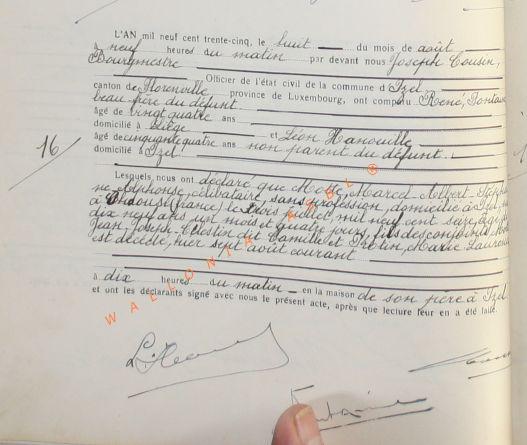 L'AN mil neuf cent trente-cinq, le huit du mois de août
à neuf heures du matin par devant nous Joseph Cousin,
Bourgmestre
Officier de l'état civil de la commune d'Izel
canton de Florenville province de Luxembourg, ont comparu René, Fontaine
beau-frère du défunt.
âgé de vingt quatre ans
domicilié à Liège et Léon Hanouille
âgé de cinquante quatre ans non parent du défunt.
domicilié à Izel
16
Lesquels nous ont déclaré que Marcel Albert
Alphonse, célibataire, sans profession, domicilié à Izel, né
à (France), le trois juillet, mil neuf cent seize, âgé de
dix neuf ans un mois et quatre jours, fils des conjoints
Jean Joseph Célestin dit Camille et Marie Laurence
est décédé, hier sept août courant
à dix heures du matin en la maison de son père à Izel
et ont les déclarants signé avec nous le présent acte, après que lecture leur en a été faite.
Fontaine
WALLONIA ASBL ®